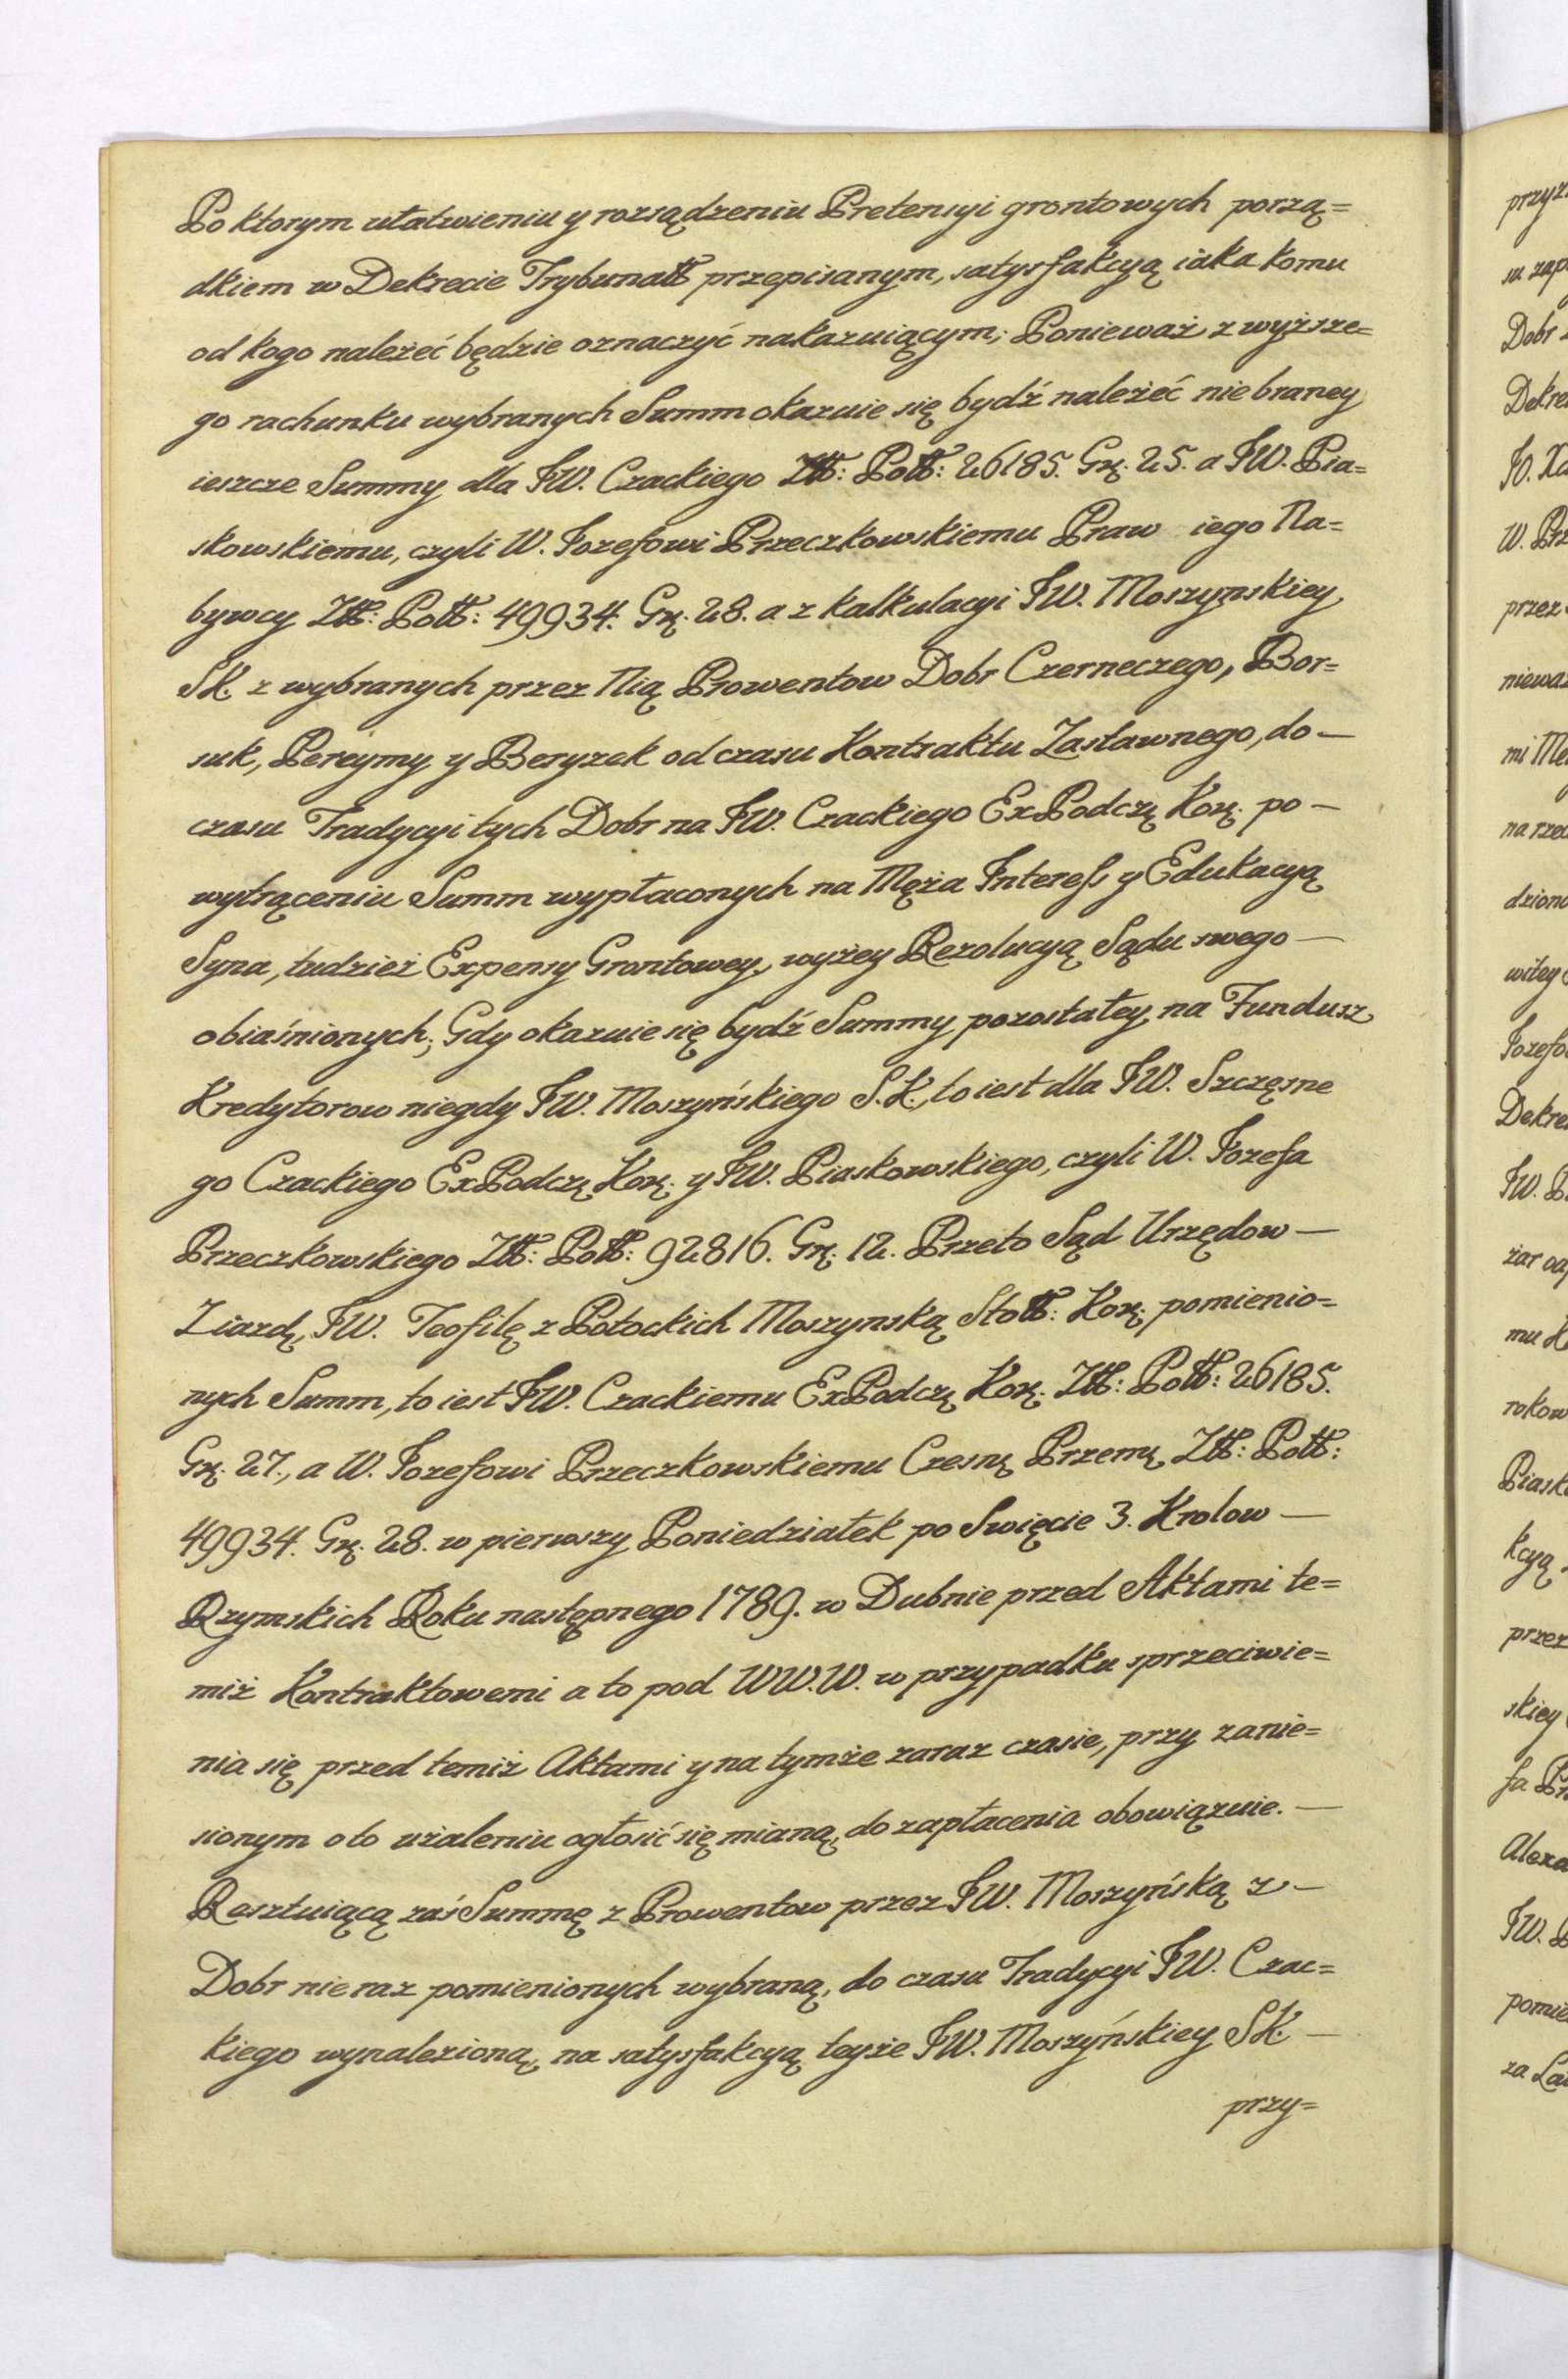 Po ktorym ułatwieniu y rozsądzeniu Pretensyi grontowych porzą=
dkiem w Dekrecie Trybunałł przepisanym, satysfakcyą iaka komu
od kogo należeć będzie oznaczyć nakazuiącym; Ponieważ z wyższe=
go rachunku wybranych Summ okazuie się bydź należeć nie braney
ieszcze Summy dla JW. Czackiego Złł: Połł: 26185. Gr: 25. a JW. Pia=
skowskiemu, czyli W. Jozefowi Przeczkowskiemu Praw iego Na=
bywcy Złł: Połł: 49934. Gr: 28. a z kalkulacyi JW. Moszynskiey
SK. z wybranych przez Nią Prowentow Dobr Czerneczego, Bor=
suk, Pereymy y Beryzek od czasu Kontraktu Zasławnego, do —
czasu Tradycyi tych Dobr na JW. Czackiego ExPodczę Korę: po —
wytrąceniu Summ wypłaconych na Męża Interess y Edukacyą
Syna, tudzież Expensy Grontowey, wyżey Rezolucyą Sądu swego —
obiaśnionych; Gdy okazuie się bydź Summy pozostałey na Fundusz
Kredytorow niegdy JW. Moszyńskiego S.K., to iest dla JW. Szczęsne
go Czackiego ExPodczę Korę: y JW. Piaskowskiego, czyli W. Jozefa
Przeczkowskiego Złł: Połł: 92816. Gr: 12. Przeto Sąd Urzędow —
Ziazdę, JW. Teofilę z Potockich Moszynską Stołł: Korę: pomienio=
nych Summ, to iest JW. Czackiemu ExPodczę Korę: Złł: Połł: 26185.
Gr: 27., a W. Jozefowi Przeczkowskiemu Czesnę Przemę Złł: Połł:
49934. Gr: 28. w pierwszy Poniedziałek po Swięcie 3. Krolow —
Rzymskich Roku następnego 1789. w Dubnie przed Aktami te=
miż Kontraktowemi a to pod WW.W. w przypadku sprzeciwie=
nia się przed temiż Aktami y na tymże zaraz czasie, przy zanie=
sionym o to użaleniu ogłosić się mianą, do zapłacenia obowiązuie. —
Resztuiącą zaś Summę z Prowentow przez JW. Moszyńską z —
Dobr nie raz pomienionych wybraną, do czasu Tradycyi JW. Czac=
kiego wynalezioną, na satysfakcyą teyże JW. Moszyńskiey SK. —
przy=